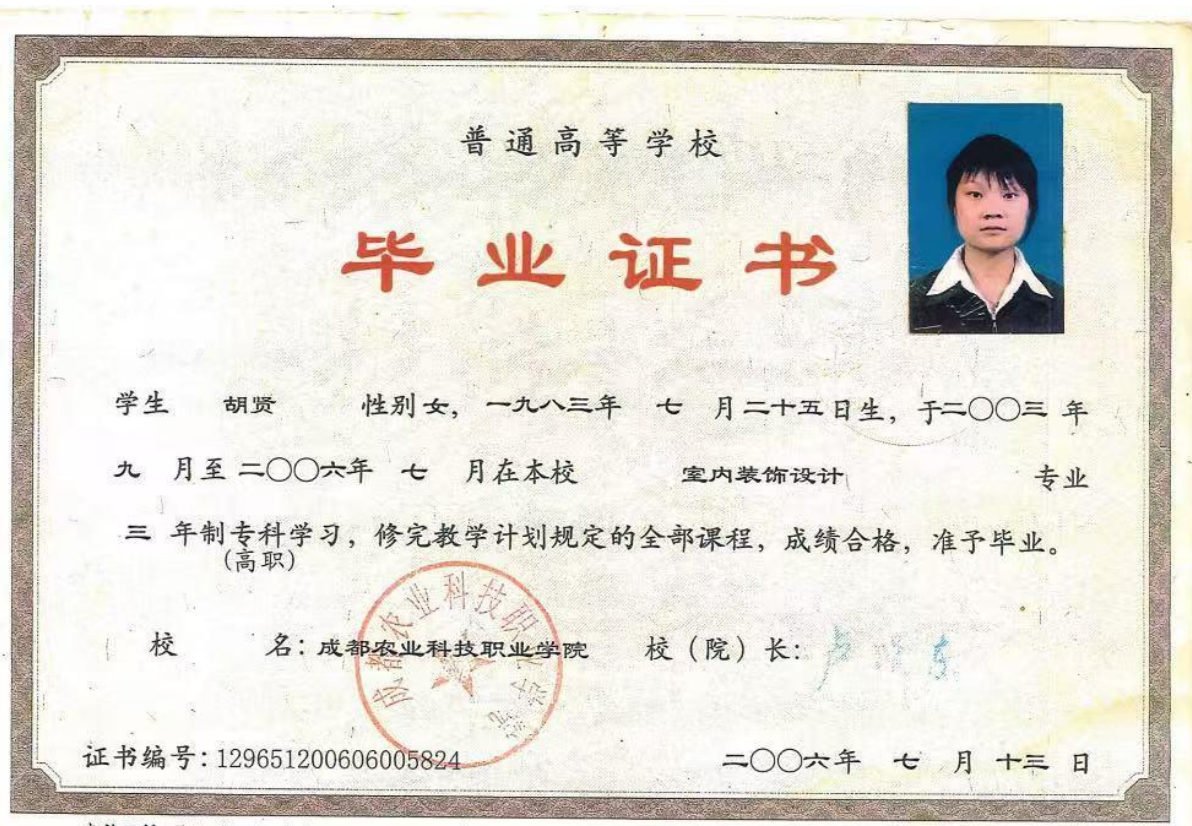 普通高等学校
毕业证书
学生 胡贤 性别女，一九八三年 七 月二十五日生，于二〇〇三 年
九 月至 二〇〇六年 七 月在本校 室内装饰设计 专业
三 年制专科学习，修完教学计划规定的全部课程，成绩合格，准予毕业。
(高职)
成都农业科技职业学院
校 名：成都农业科技职业学院 校（院）长：
证书编号：129651200606005824 二〇〇六年 七 月 十三 日